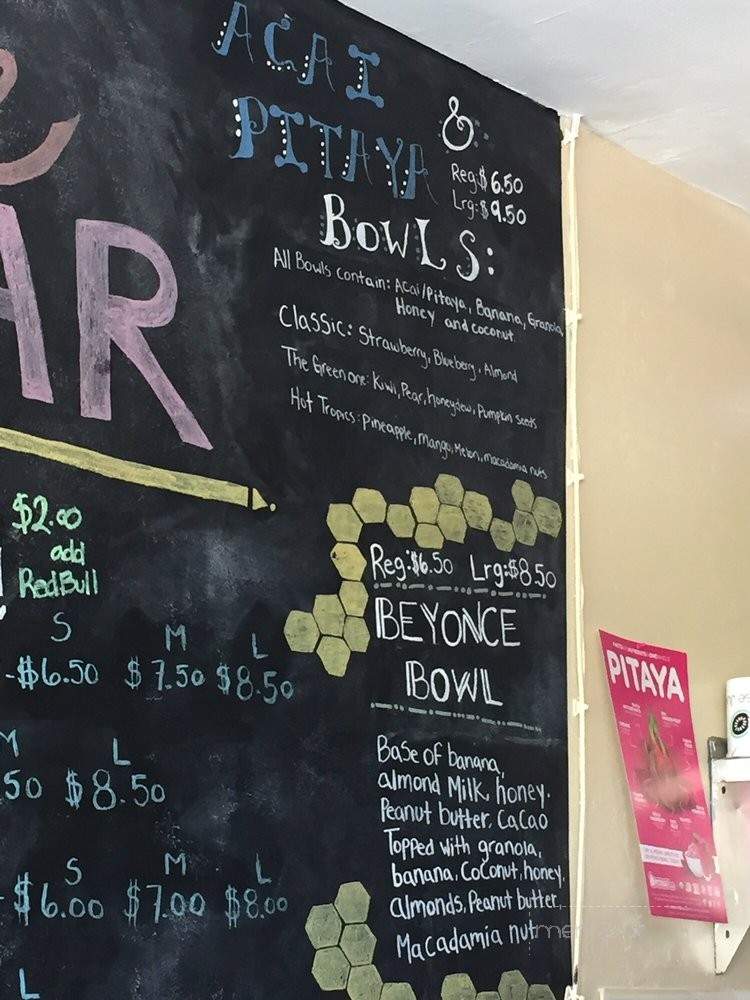 ACAI
&
PITAYA
Reg:$6.50
Lrg:$9.50
BOWLS:
All Bowls contain: Acai/Pitaya, Banana, Granola,
Honey and coconut
Classic: Strawberry, Blueberry, Almond
The Green one: Kiwi, Pear, honeydew, Pumpkin seeds
Hot Tropics: Pineapple, mango, Melon, macadamia nuts
AR
$2.00
add
RedBull
S M L
-$6.50 $7.50 $8.50
M L
50 $8.50
S M L
-$6.00 $7.00 $8.00
L
Reg:$6.50 Lrg:$8.50
BEYONCE
BOWL
Base of banana,
almond Milk, honey.
Peanut butter, CaCao
Topped with granola,
banana, Coconut, honey,
almonds, Peanut butter
Macadamia nut
PITAYA